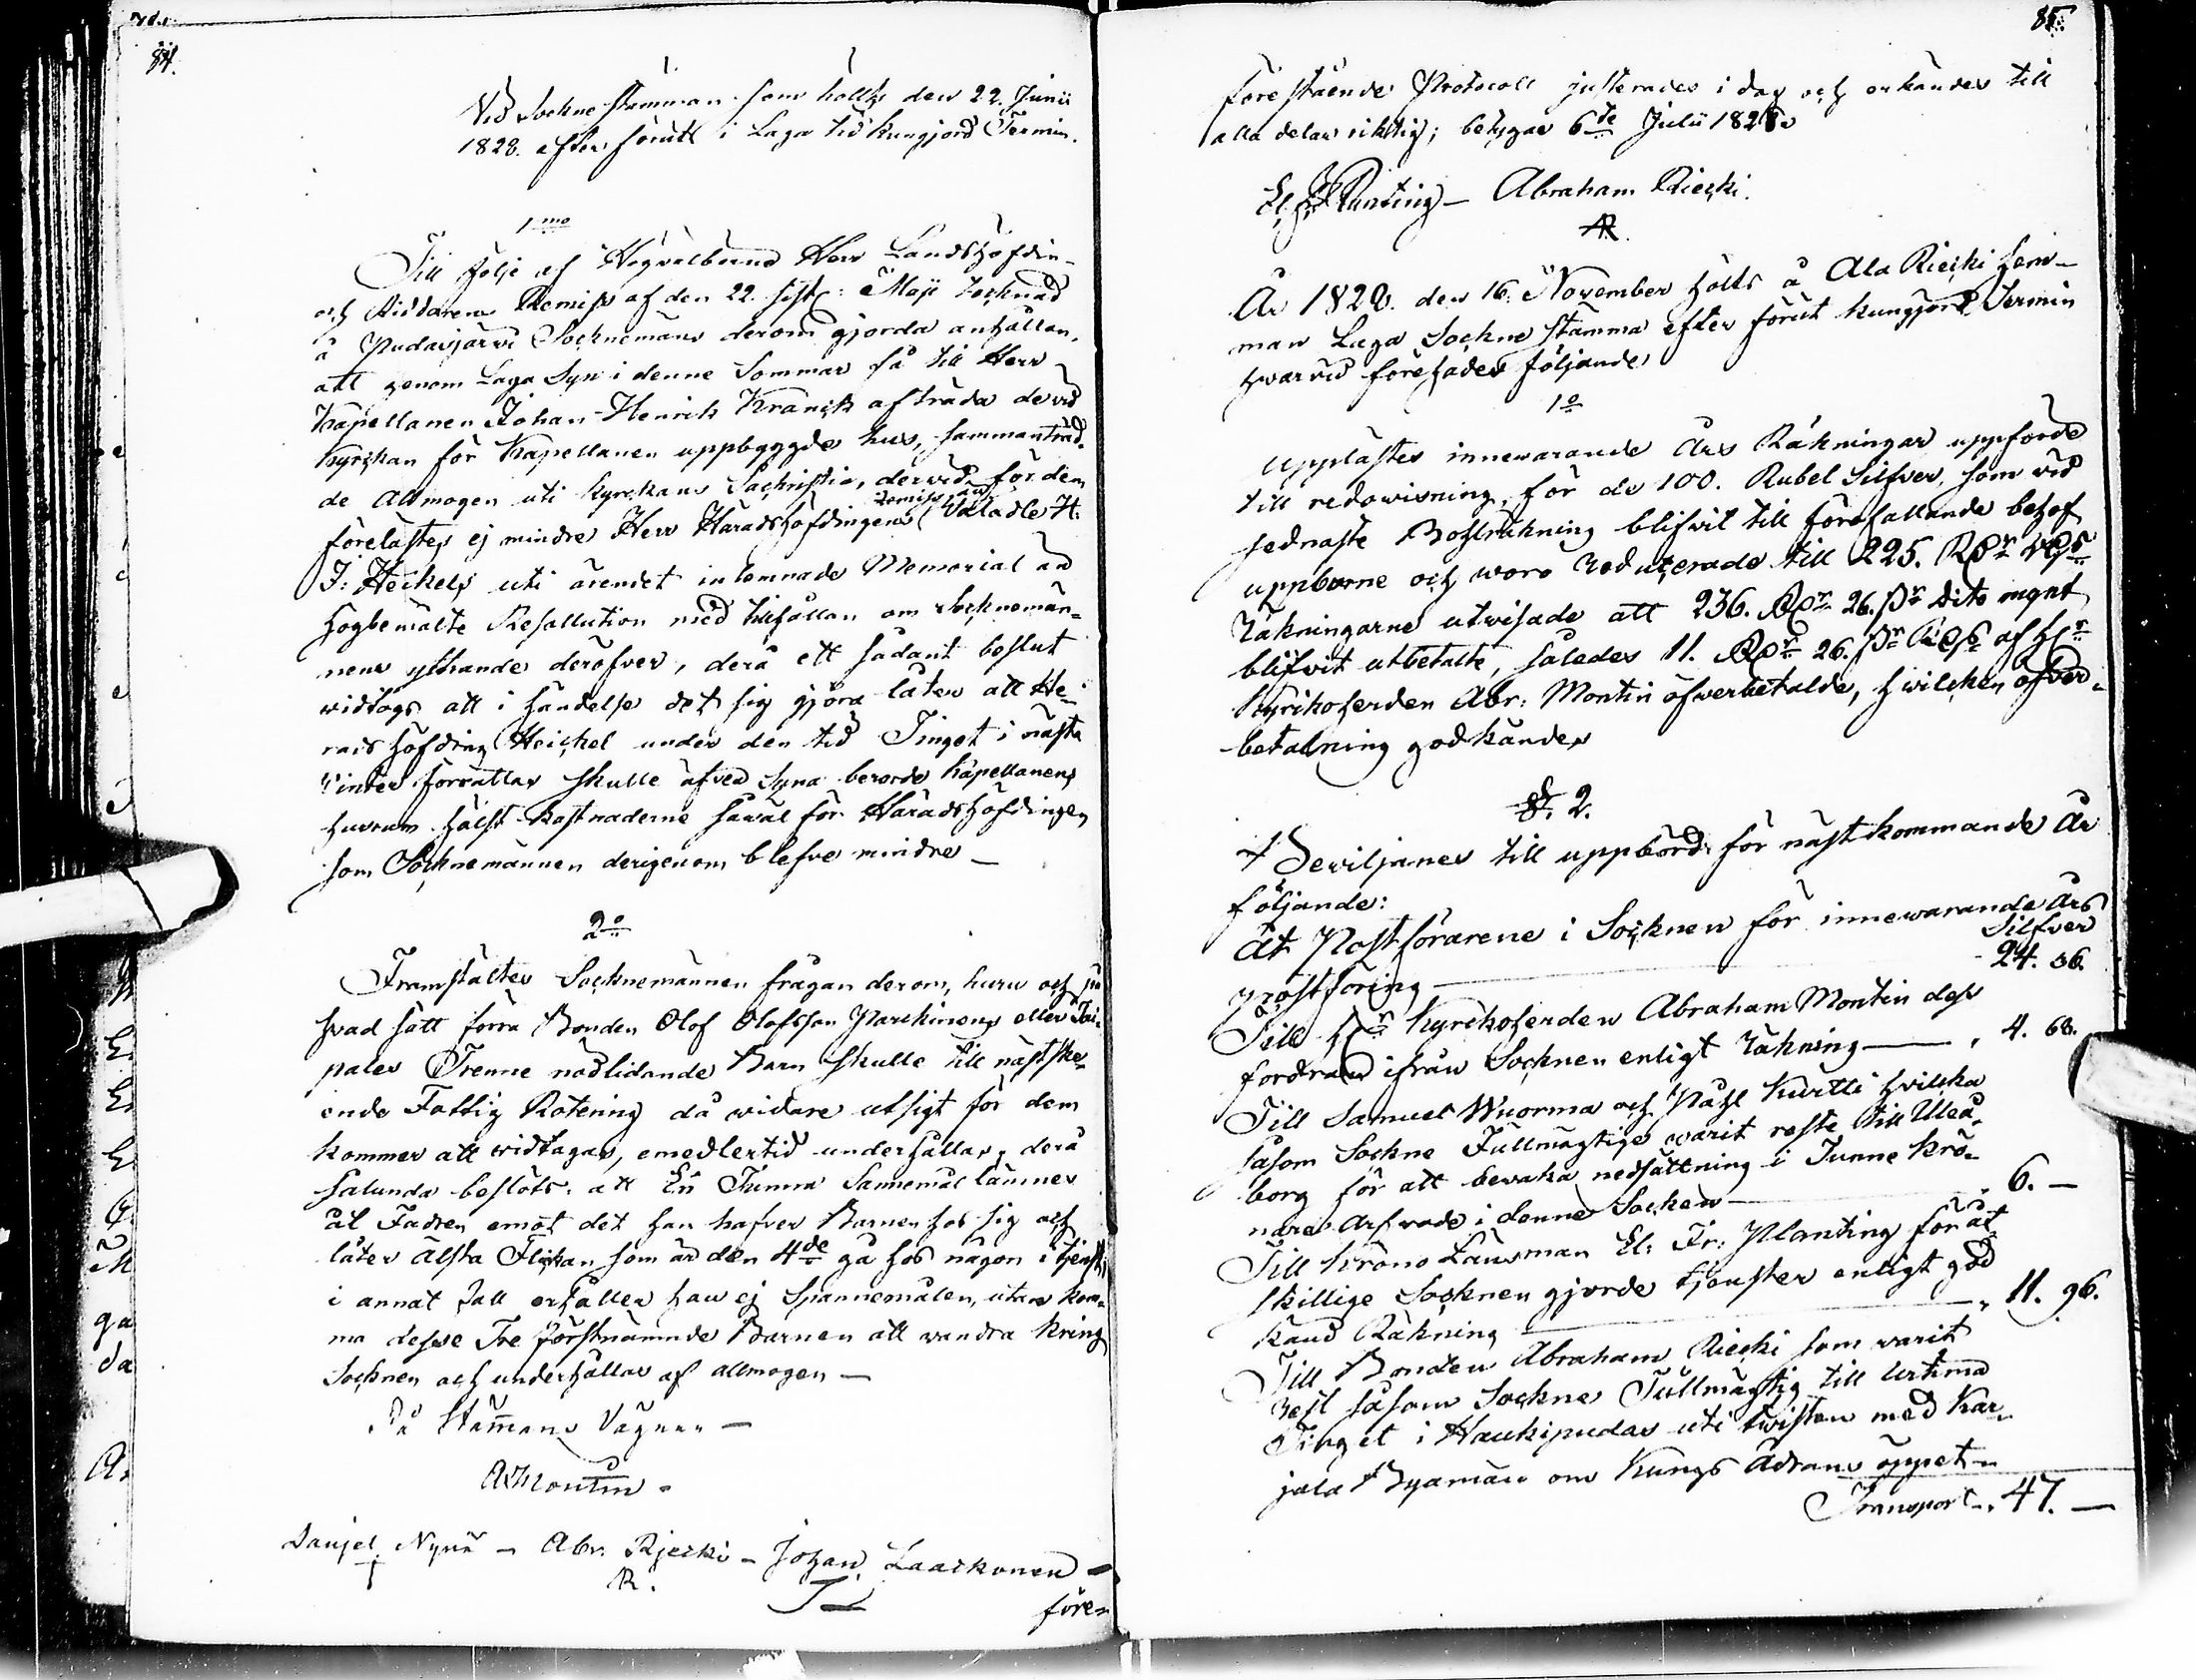 84.
Vid Sockne stämman som hölts den 22. Junii
1828. efter förutt i Laga tid kungjord Termin.
1mo
Till följe af Högvälborne Herr Landshöfdin-
och Riddarens Remiss af den 22. sistl: Maji tecknad
å Pudasjärvi Socknemäns derom gjorda anhållan,
att genom Laga Syn i denne Sommar få till Herr
Kapellanen Johan Henrik Kranck afträda de vid
kyrckan för Kapellanen uppbyggde hus, sammanträd-
de Allmogen uti kyrckans Sachristia, dervid för dem
förelästes ej mindre Herr Häradshöfdingens Välädle H:
J: Heickels uti ärendet inlemnade Memorial än
högbemälte Resollution med tillfållan om Socknemän-
nens yttrande deröfver, derå ett sådant beslut
widtogs att i händelse det sig gjöra låter att Hä-
rads höfding Heickel under den tid Tinget i nästa
Vinter förrättas skulle äfven Syna berörde Kapellanens
husrum hälst kostnaderne såwäl för Häradshöfdingen
som Socknemännen derigenom blefve mindre –
2o
Framstältes Socknemännen frågan derom, huru och på
hvad sätt förra Bonden Olof Olofsson Parckinens eller
pales Trenne nödlidande Barn skulle till nästske-
ende Fattig Rotering då widare utsigt för dem
kommer att widtagas, emedlertid underhållas, derå
sålunda beslöts: att En Tunna Sannemål lämnes
åt Fadren emot det han hafver Barnen hos sig och
låter älsta Flickan som är den 4de gå hos någon i tjenst,
i annat fall erhåller han ej Spannemålen, utan kom-
ma desse Tre förstnämnde Barnen att vandra kring
Socknen och underhållas af allmogen –
På Stämmans Vägnar –
A Montin.
Danjel Nynä – Abr. Rjecki – Johan Laackonen –
AR.
före-
85.
förestående Protocoll justerades i dag och erkändes till
alla delar riktig; betygas 6te Julii 1828.
El. Fr. Planting – Abraham Riecki.
AR.
År 1828. den 16. November holts å Ala Riecki hem-
man Laga Sockne stämma efter förut kungjord Termin
hvarvid förehades följande
1o
Upplästes innewarande Års Räkningar uppförde
till redowisning för de 100. Rubel Silfver, som vid
sednaste Boslräkning blifvit till förefallande behof
uppborne och woro reducerade till 225.
Räkningarne utwisade att 236. 26. dito mynt
blifvit utbetalte, således 11. 26. af Hr
Kyrckoherden Abr: Montin öfwerbetalde, hwilcken öfver-
betalning godkändes
§. 2.
Bewiljanes till uppbörd för nästkommande År
följande:
Åt Postförarene i Socknen för innewarande Års
Silfver
postföring – 24. 36.
Till Hr Kyrckoherden Abraham Montin dess
fordran ifrån Socknen enligt räkning – 4. 68.
Till Samuel Wuorma och Påhl Kurtti hvilcka
såsom Sockne Fullmägtige varit reste till Uleå-
borg för att bevaka nedsättning i Tunne krö-
nare Arfvode i denne Socken – 6. –
Till Krono Länsman El: Fr: Planting för åt-
skillige Socknen gjorde tjenster enligt god
känd Räkning – 11. 96.
Till Bonden Abraham Riecki som varit
rest såsom Sockne Fullmägtig till Urtima
Tinget i Haukipudas uti twisten med Kar-
jala Byamän om Kungs Ådrans öppet-
Transport – 47. –